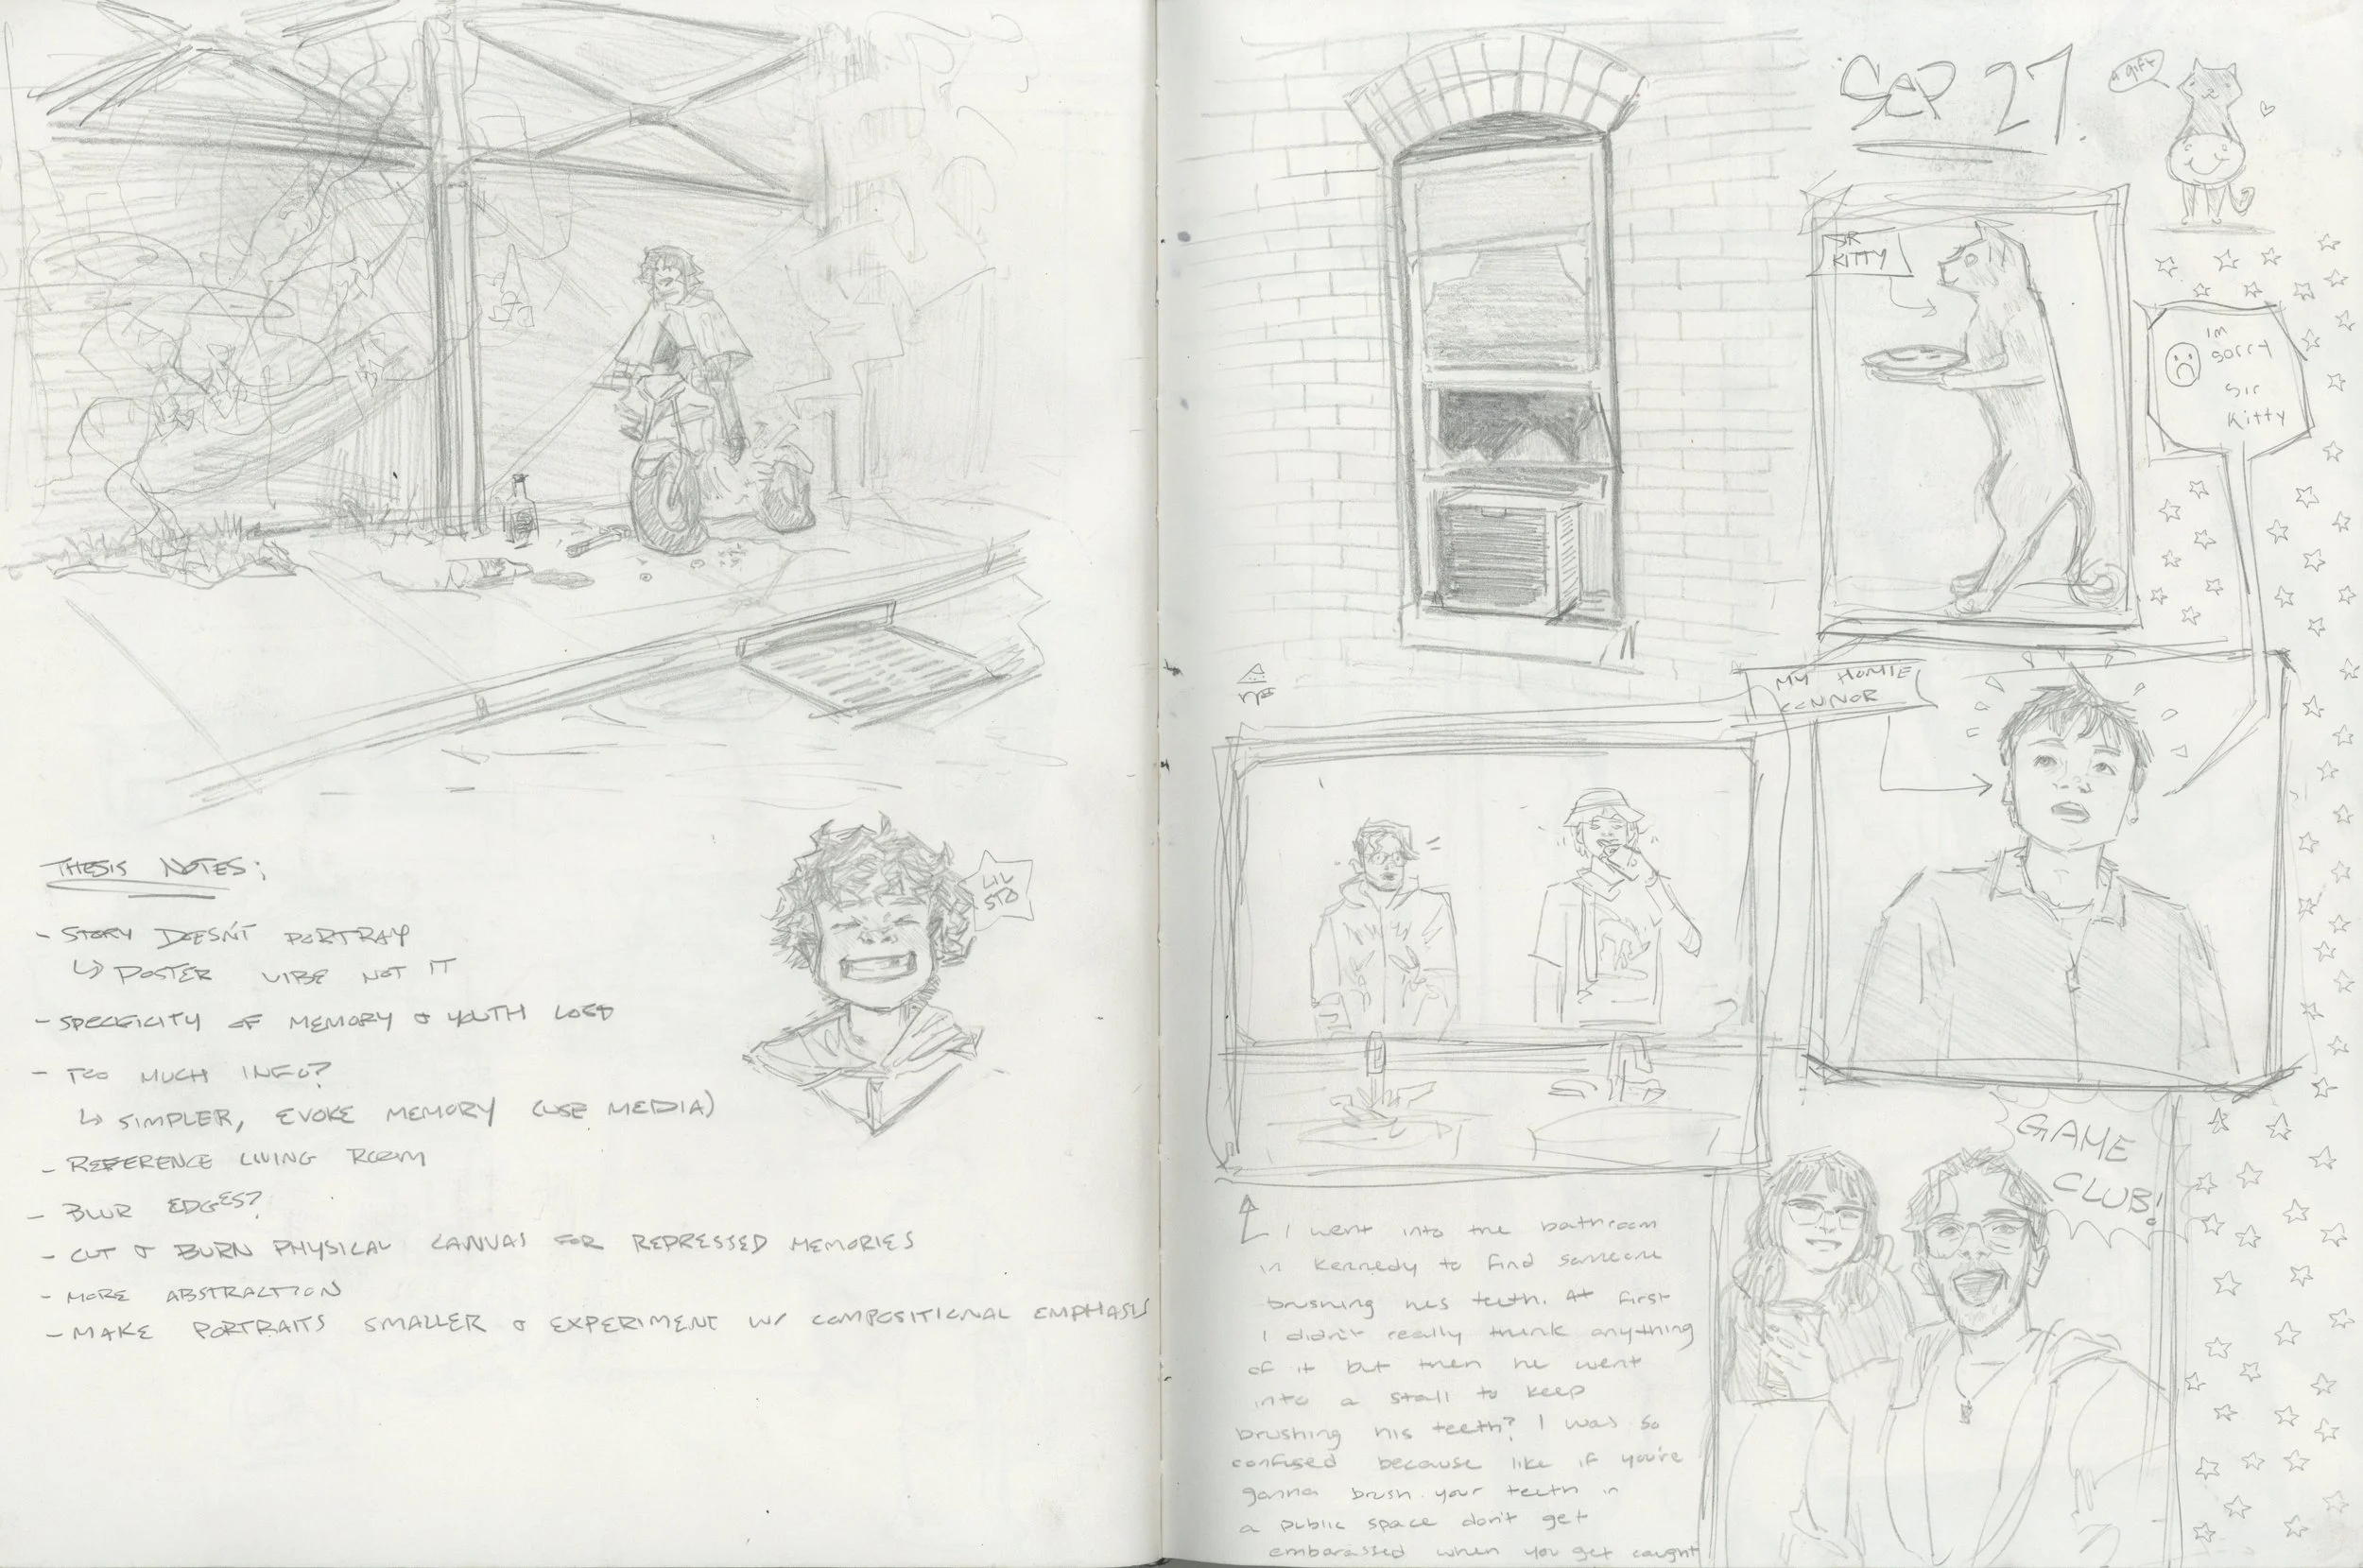 THESIS NOTES:
- STORY DOESN'T PORTRAY
↳ POSTER VIBE NOT IT
- SPECIFICITY OF MEMORY & YOUTH LOST
- TOO MUCH INFO?
↳ SIMPLER, EVOKE MEMORY (USE MEDIA)
- REFERENCE LIVING ROOM
- BLUR EDGES?
- CUT & BURN PHYSICAL CANVAS FOR REPRESSED MEMORIES
- MORE ABSTRACTION
- MAKE PORTRAITS SMALLER & EXPERIMENT W/ COMPOSITIONAL EMPHASIS
LIL
SEP 27
a gift
SIR
KITTY
im
sorry
sir
kitty
MY HOMIE
CONNOR
GAME
CLUB!
I went into the bathroom
in Kennedy to find someone
brushing his teeth. At first
I didn't really think anything
of it but then he went
into a stall to keep
brushing his teeth? I was so
confused because like if you're
gonna brush your teeth in
a public space don't get
embarassed when you get caught